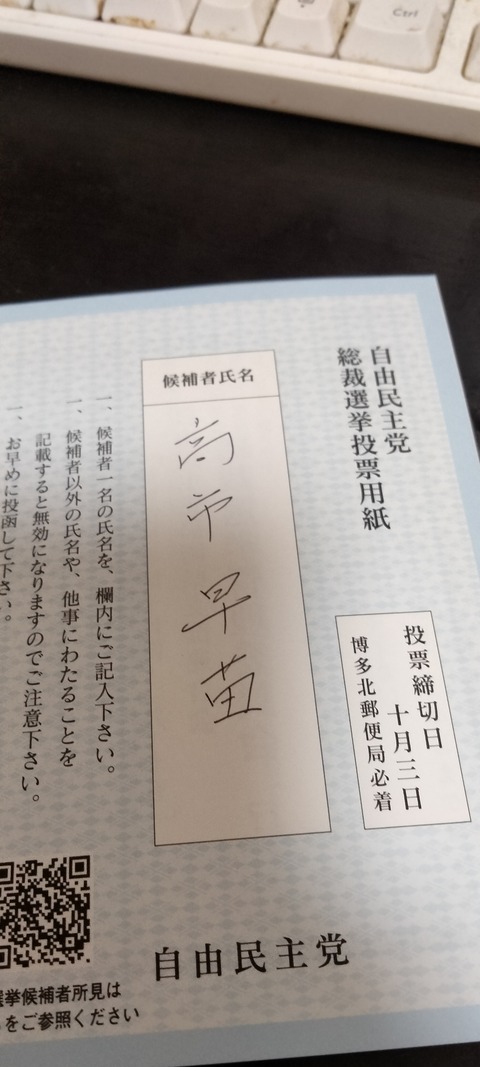 Ctrl
自由民主党
総裁選挙投票用紙
投票締切日
十月三日
博多北郵便局必着
候補者氏名
高市早苗
一、候補者一名の氏名を、欄内にご記入下さい。
一、候補者以外の氏名や、他事にわたることを
記載すると無効になりますのでご注意下さい。
一、お早めに投函して下さい。
自由民主党
選挙候補者所見は
をご参照ください